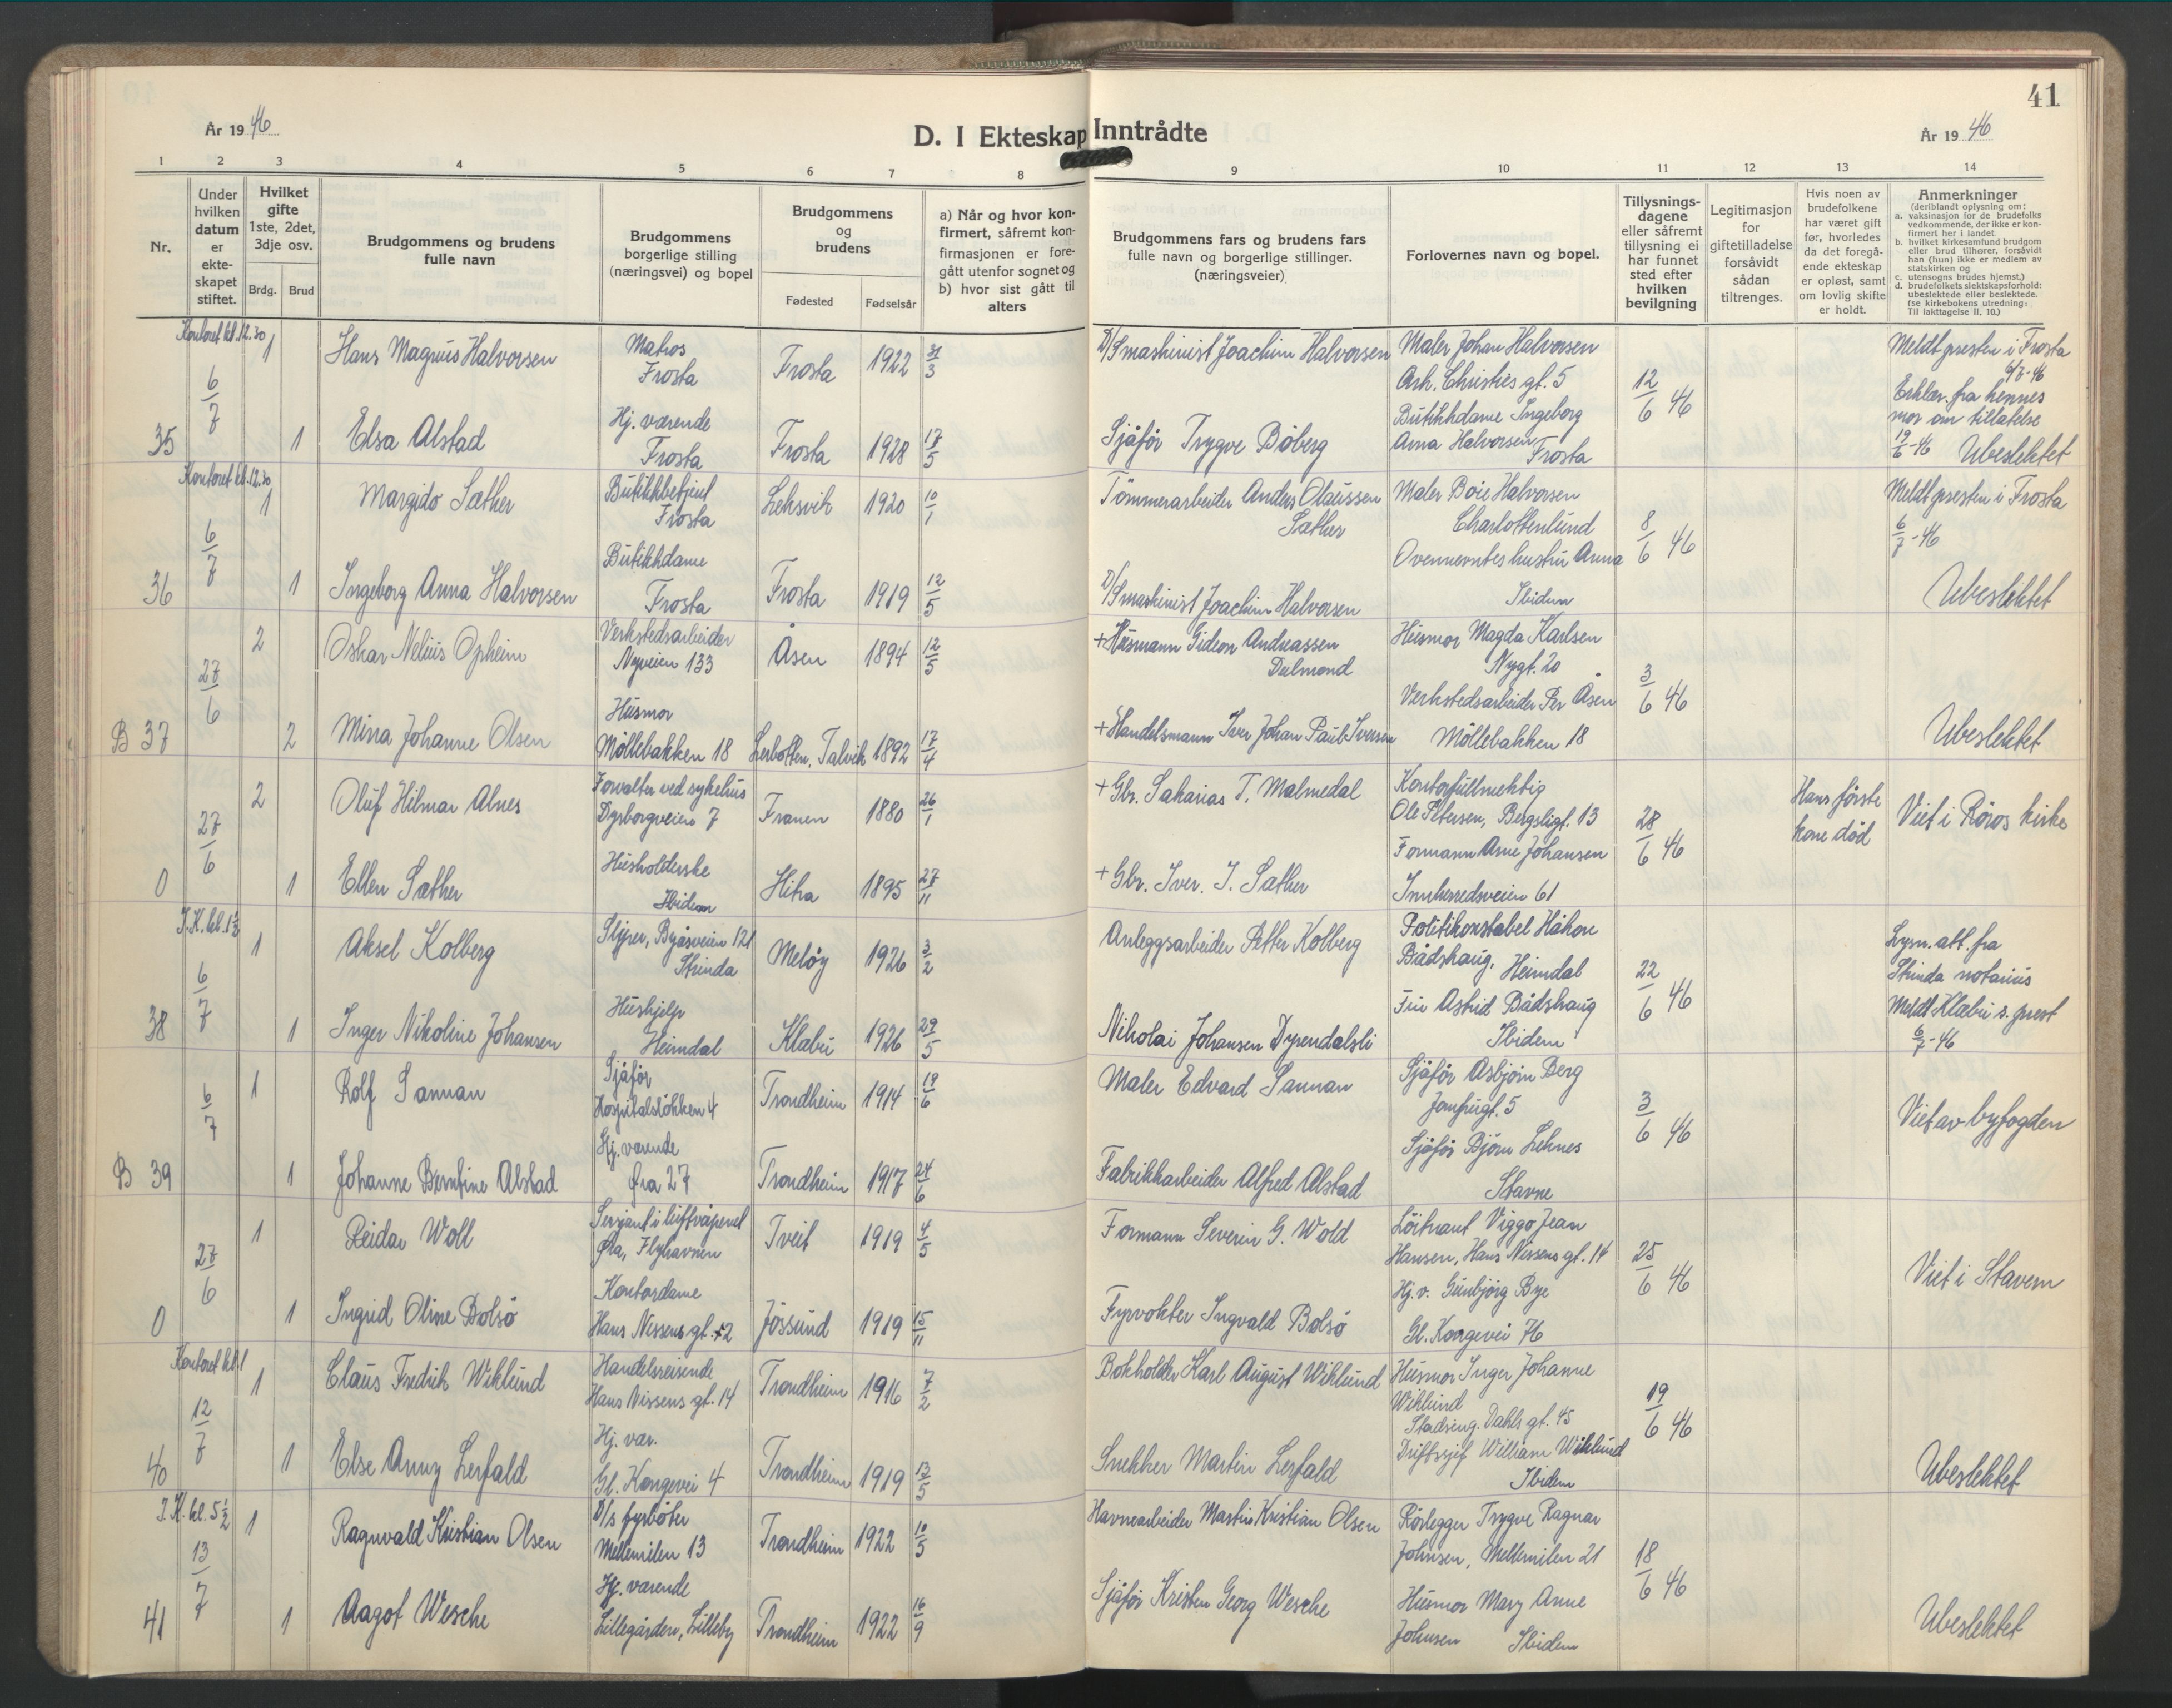 41
År 19 46
D. I Ekteskap Inntrådte
År 19 46
1 2 3 4 5 6 7 8 9 10 11 12 13 14
Nr.
Under hvilken datum er ekteskapet stiftet.
Hvilket gifte 1ste, 2det, 3dje osv.
Brdg. Brud
Brudgommens og brudens fulle navn
Brudgommens borgerlige stilling (næringsvei) og bopel
Brudgommens og brudens
Fødested Fødselsår
a) Når og hvor konfirmert, såfremt konfirmasjonen er foregått utenfor sognet og
b) hvor sist gått til alters
Brudgommens fars og brudens fars fulle navn og borgerlige stillinger. (næringsveier)
Forlovernes navn og bopel.
Tillysningsdagene eller såfremt tillysning ei har funnet sted efter hvilken bevilgning
Legitimasjon for giftetilladelse forsåvidt sådan tiltrenges.
Hvis noen av brudefolkene har været gift før, hvorledes da det foregående ekteskap er opløst, samt om lovlig skifte er holdt.
Anmerkninger
(deriblandt oplysning om:
a. vaksinasjon for de brudefolks vedkommende, der ikke er konfirmert her i landet
b. hvilket kirkesamfund brudgom eller brud tilhører, forsåvidt han (hun) ikke er medlem av statskirken og
c. utensogns brudes hjemst.)
d. brudefolkets slektskapsforhold: ubeslektede eller beslektede.
(se kirkebokens utredning: Til iakttagelse II. 10.)
Kontoret kl. 12.30
35 6/7 1 Hans Magnus Halvorsen Matros Frosta Frosta 1922 31/3 D/Smaskinist Joachim Halvorsen Maler Johan Halvorsen
Ark. Christies gt. 5 12/6 46 Meldt presten i Frosta 6/7-46
Erklær. fra hennes mor om tillatelse 19/6-46 Ubeslektet
1 Elsa Alstad Hj. værende Frosta Frosta 1928 17/5 Sjåfør Trygve Böberg Butikkdame Ingeborg Anna Halvorsen Frosta
Kontoret kl. 12.30
36 6/7 1 Margido Sæther Butikkbetjent Frosta Leksvik 1920 10/1 Tömmerarbeider Anders Olaussen Sæther Maler Boie Halvorsen
Charlottenlund 8/6 46 Meldt presten i Frosta 6/7-46
1 Ingeborg Anna Halvorsen Butikkdame Frosta Frosta 1919 12/5 D/Smaskinist Joachim Halvorsen Ovennevntes hustru Anna
Ibidem Ubeslektet
B 37 27/6 2 Oskar Nelius Opheim Verkstedsarbeider Nyveien 133 Åsen 1894 12/5 +Husmann Gideon Andreassen Dalmond Husmor Magda Karlsen
Nygt. 20 3/6 46
2 Mina Johanne Olsen Husmor Möllebakken 18 Lerbotten, Talvik 1892 17/4 +Handelsmann Iver Johan Paul Iversen Verkstedsarbeider Per Åsen
Möllebakken 18 Ubeslektet
0 27/6 2 Oluf Hilmar Alnes Forvalter ved sykehus Dyrborgveien 7 Franen 1880 26/1 +Gbr. Sakarias T. Malmedal Kontorfullmektig
Ole Petersen, Bergsligt. 13 28/6 46 Hans første kone död Viet i Röros kirke
1 Ellen Sæther Husholderske Ibidem Hitra 1895 27/11 +Gbr. Iver. I. Sæther Formann Arne Johansen
Innherredsveien 61
I. K. kl. 1½
38 6/7 1 Aksel Kolberg Slyper, Byåsveien 121 Strinda Melöy 1926 3/2 Anleggsarbeider Petter Kolberg Politikonstabel Håkon
Bådshaug, Heimdal 22/6 46 Lysn. att. fra Strinda notarius
1 Inger Nikoline Johansen Hushjelp Heimdal Klæbu 1926 29/5 Nikolai Johansen Dyrendalsli Fru Astrid Bådshaug
Ibidem Meldt Klæbu s. prest 6/7-46
B 39 6/7 1 Rolf Sannan Sjåfør Hospitalslökken 4 Trondheim 1914 19/6 Maler Edvard Sannan Sjåfør Asbjörn Berg
Jomfrugt. 5 3/6 46 Viet av byfogden
1 Johanne Berntine Alstad Hj. værende Øra 27 Trondheim 1917 24/6 Fabrikkarbeider Alfred Alstad Sjåfør Björn Leknes
Stavne
0 27/6 1 Reidar Woll Sersjant i luftvåpenet Øra, Flyhavnen Tveit 1919 4/5 Formann Severin G. Wold Löitnant Viggo Jean
Hansen, Hans Nissens gt. 14 25/6 46 Viet i Stavern
1 Ingrid Oline Bolsö Kontordame Hans Nissens gt. 12 Jössund 1919 15/11 Fyrvokter Ingvald Bolsö Hj. v. Gunbjörg Bye
Gl. Kongevei 76
Kontoret kl. 1
40 12/7 1 Claus Fredrik Wiklund Handelsreisende Hans Nissens gt. 14 Trondheim 1916 7/2 Bokholder Karl August Wiklund Husmor Inger Johanne Wiklund
Stadsing. Dahls gt. 45 19/6 46
1 Else Anny Lerfald Hj. vær. Gl. Kongevei 4 Trondheim 1919 13/5 Snekker Martin Lerfald Driftssjef William Wiklund
Ibidem Ubeslektet
I. K. kl. 5½
41 13/7 1 Ragnvald Kristian Olsen D/s fyrböter Mellemilen 13 Trondheim 1922 10/5 Havnearbeider Martin Kristian Olsen Rörlegger Trygve Ragnar
Johnsen, Mellemilen 21 18/6 46
1 Aagot Wesche Hj. værende Lillegården, Lilleby Trondheim 1922 16/9 Sjåfør Kristen Georg Wesche Husmor Mary Anne
Johnsen Ibidem Ubeslektet